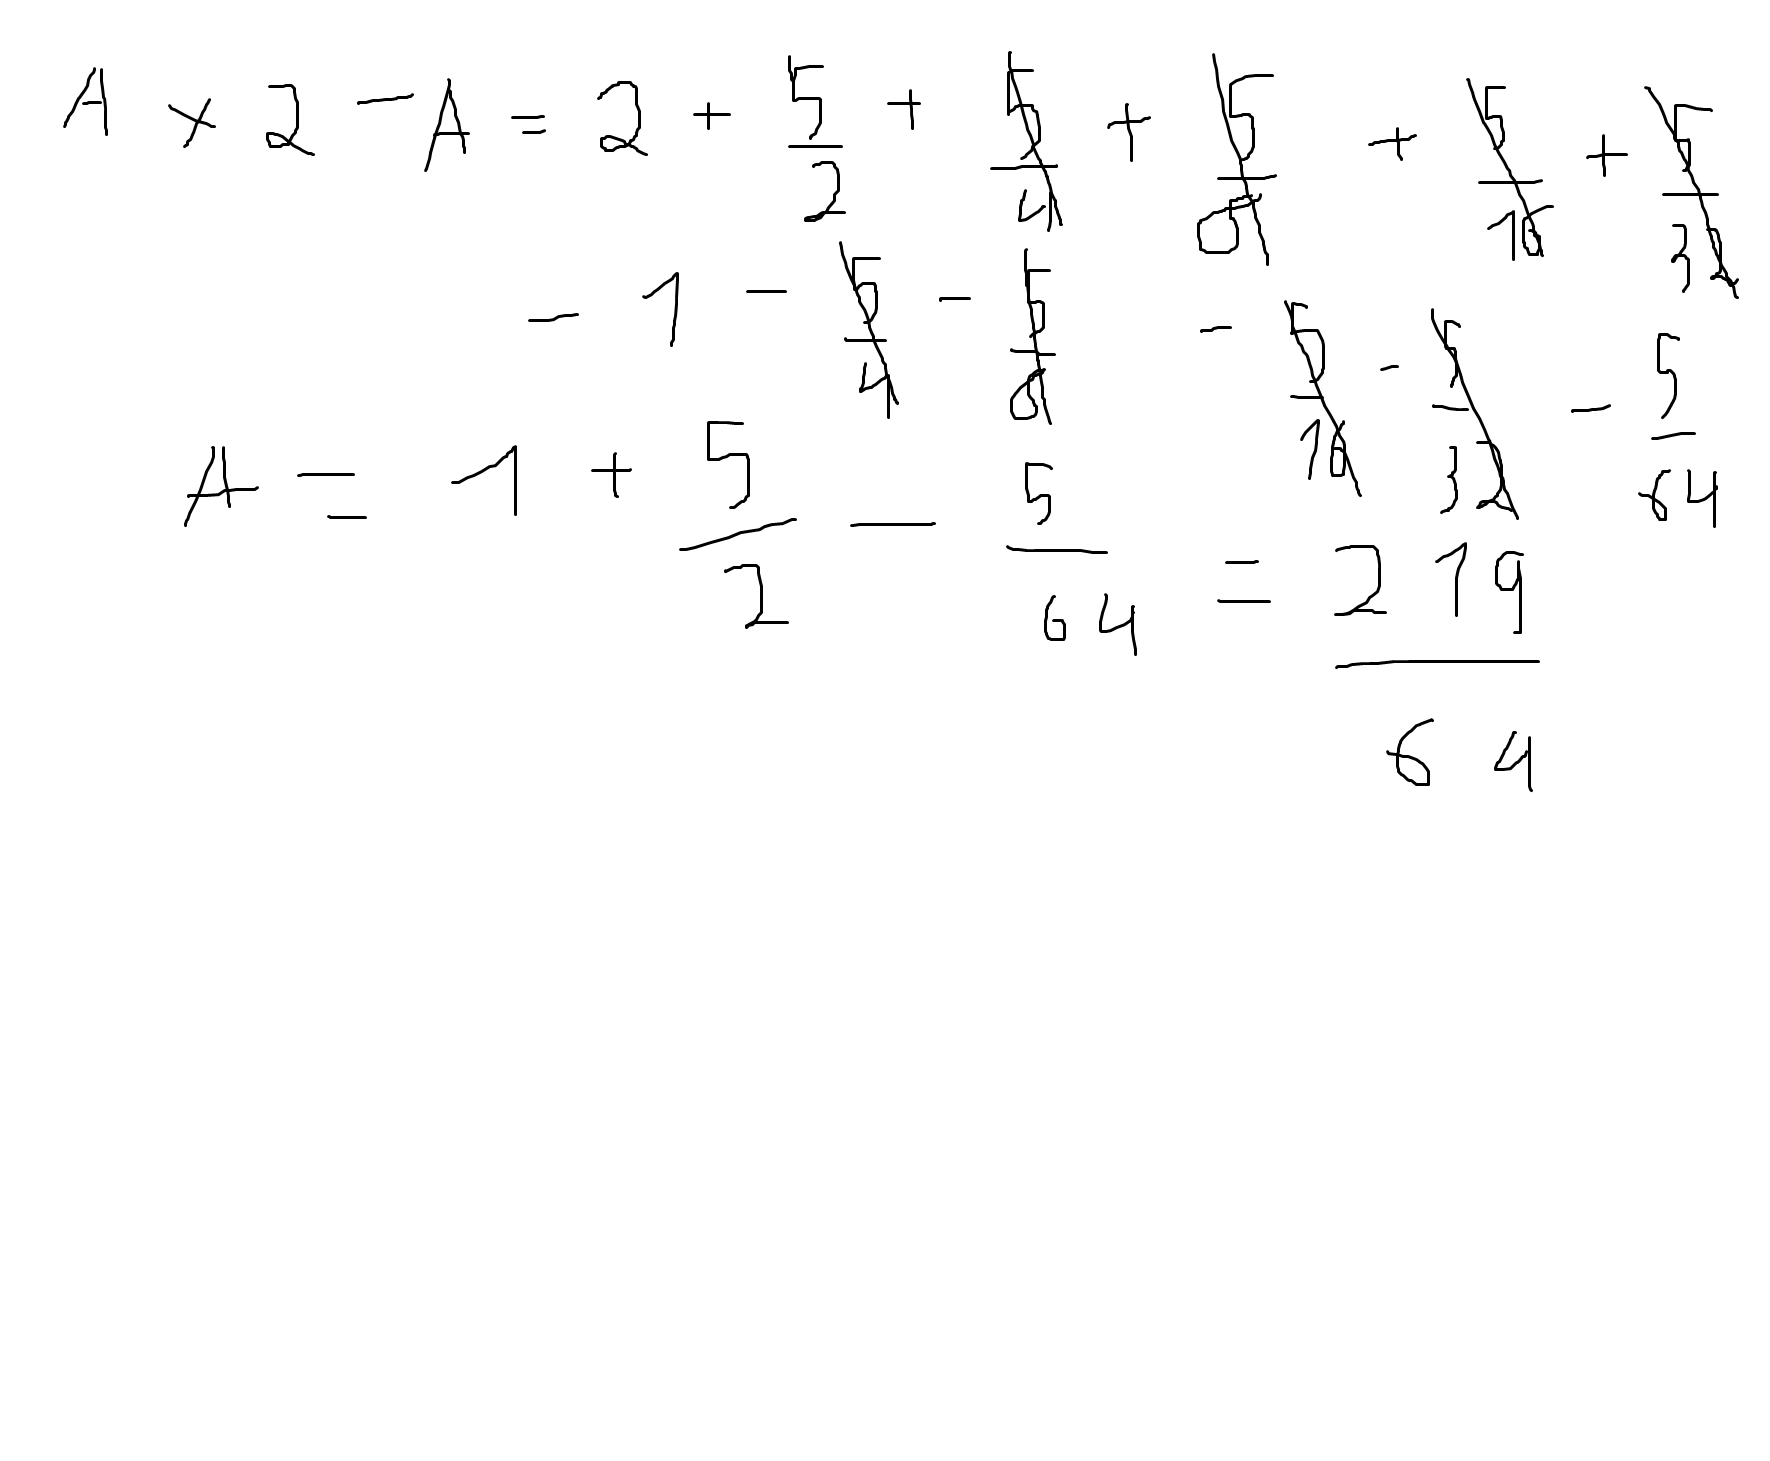 A × 2 - A = 2 + 5/2 + 5/4 + 5/8 + 5/16 + 5/32
- 1 - 5/4 - 5/8 - 5/16 - 5/32 - 5/64
A = 1 + 5/2 - 5/64 = 219/64